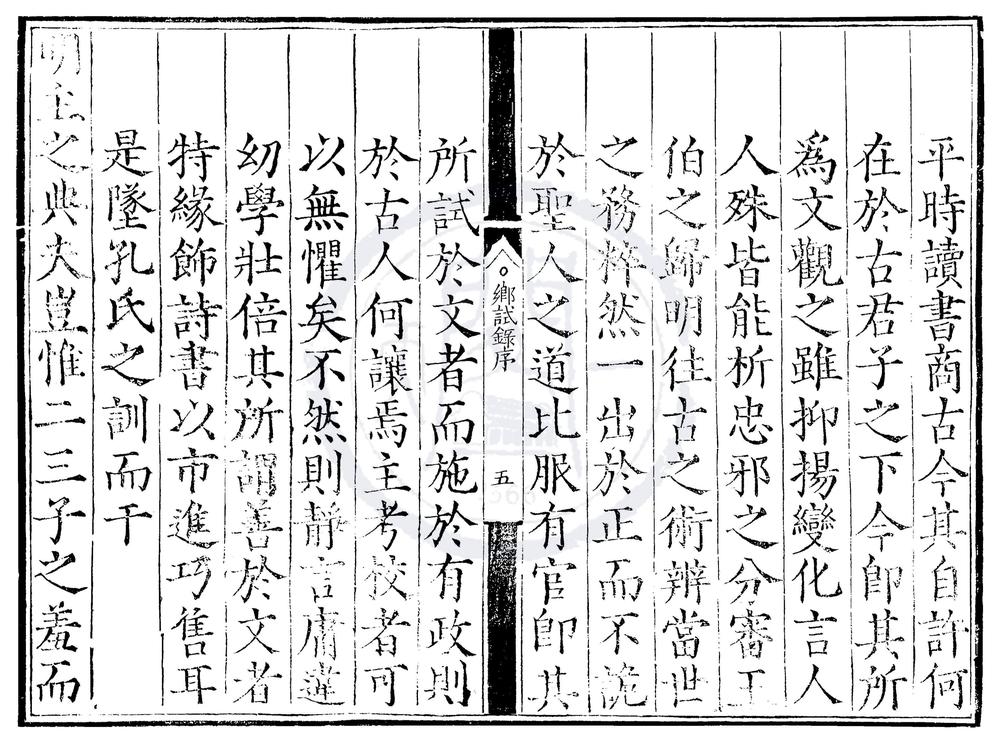 平時讀書商古今其自許何
在於古君子之下今卽其所
爲文觀之雖抑揚變化言人
人殊皆能析忠邪之分審王
伯之歸明往古之術辨當世
之務粹然一出於正而不詭
於聖人之道比服有官卽其
鄉試錄序
五
所試於文者而施於有政則
於古人何讓焉主考校者可
以無懼矣不然則靜言庸違
幼學壯倍其所謂善於文者
特緣飾詩書以市進巧售耳
是墜孔氏之訓而干
明主之典夫豈惟二三子之羞而